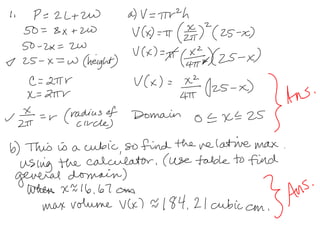 1. P = 2L + 2w
50 = 2x + 2w
50 - 2x = 2w
✓ 25 - x = w (height)
C = 2πr
x = 2πr
✓ x/2π = r (radius of circle)
a) V = πr²h
V(x) = π (x/2π)² (25-x)
V(x) = π (x²/4π²)(25-x)
V(x) = x²/4π (25-x)
Domain 0 ≤ x ≤ 25
Ans.
b) This is a cubic, so find the relative max.
using the calculator. (use table to find
general domain)
when x ≈ 16.67 cm
max volume V(x) ≈ 184.21 cubic cm.
Ans.